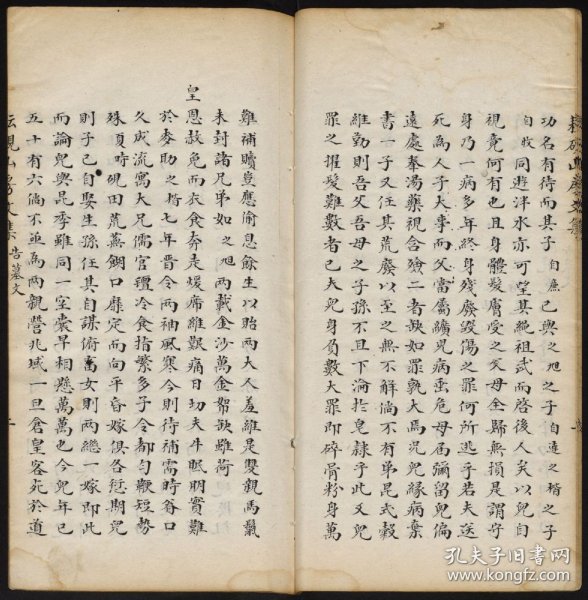 功名有待而其子自庶已與之旭之子自遠之楷之子
自牧同遊泮水亦可望其繩祖武而啓後人矣以兒自
視竟何有也且而身體髮膚受之父母全歸無損是謂守
身乃一病多年終身殘廢毀傷之罪何所逃乎若夫送
死為人子大事而父當屬纊兒病垂危母屆彌留兒偏
遠處奉湯藥視含殮二者缺如罪孰大焉兄兒緣病棄
書一子又任其荒廢以至之無不解倘不有弟昆式穀
維勤則吾父吾母之子孫不且下淪於皂隸乎此又兒
罪之擢髮難數者已夫兒身負數大罪即碎骨粉身萬
難補贖豈應偷息餘生以貽兩大人羞維是雙親馬鬣
未封諸兄弟如之旭兩載金沙萬金帑欵雖荷
皇恩赦免而衣食奔走煖席維艱痛日切夫牛眠明實難
於麥助之楷七年晉令兩袖風寒今則待補需時眷口
久成流寓大兄儒官氊冷食指繁多子令都勻歡短勢
殊頃時硯田荒蕪餬口靡定而向平昏嫁俱各愆期兒
則子已自娶生孫任其自謀俯畜女則兩繼一嫁即此
而論兒與昆季雖同一室棠早相懸萬萬也今兒年已
五十有六倘不亟為兩親營兆域一旦倉皇客死於道
山房文集
告墓文
孔夫子旧书网
www.kongfz.com